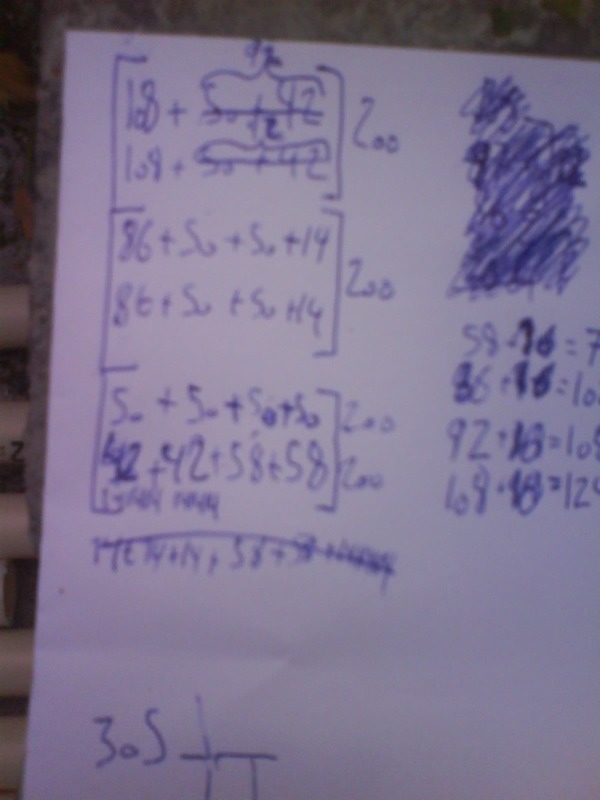 92
108 + 50 + 42
200
92
108 + 50 + 42
86 + 50 + 50 + 14
200
86 + 50 + 50 + 14
50 + 50 + 50 + 50 200
42 + 42 + 58 + 58 200
14+14+14+58+58
305
58 + 16 = 7
86 + 16 = 10
92 + 16 = 108
108 + 16 = 124